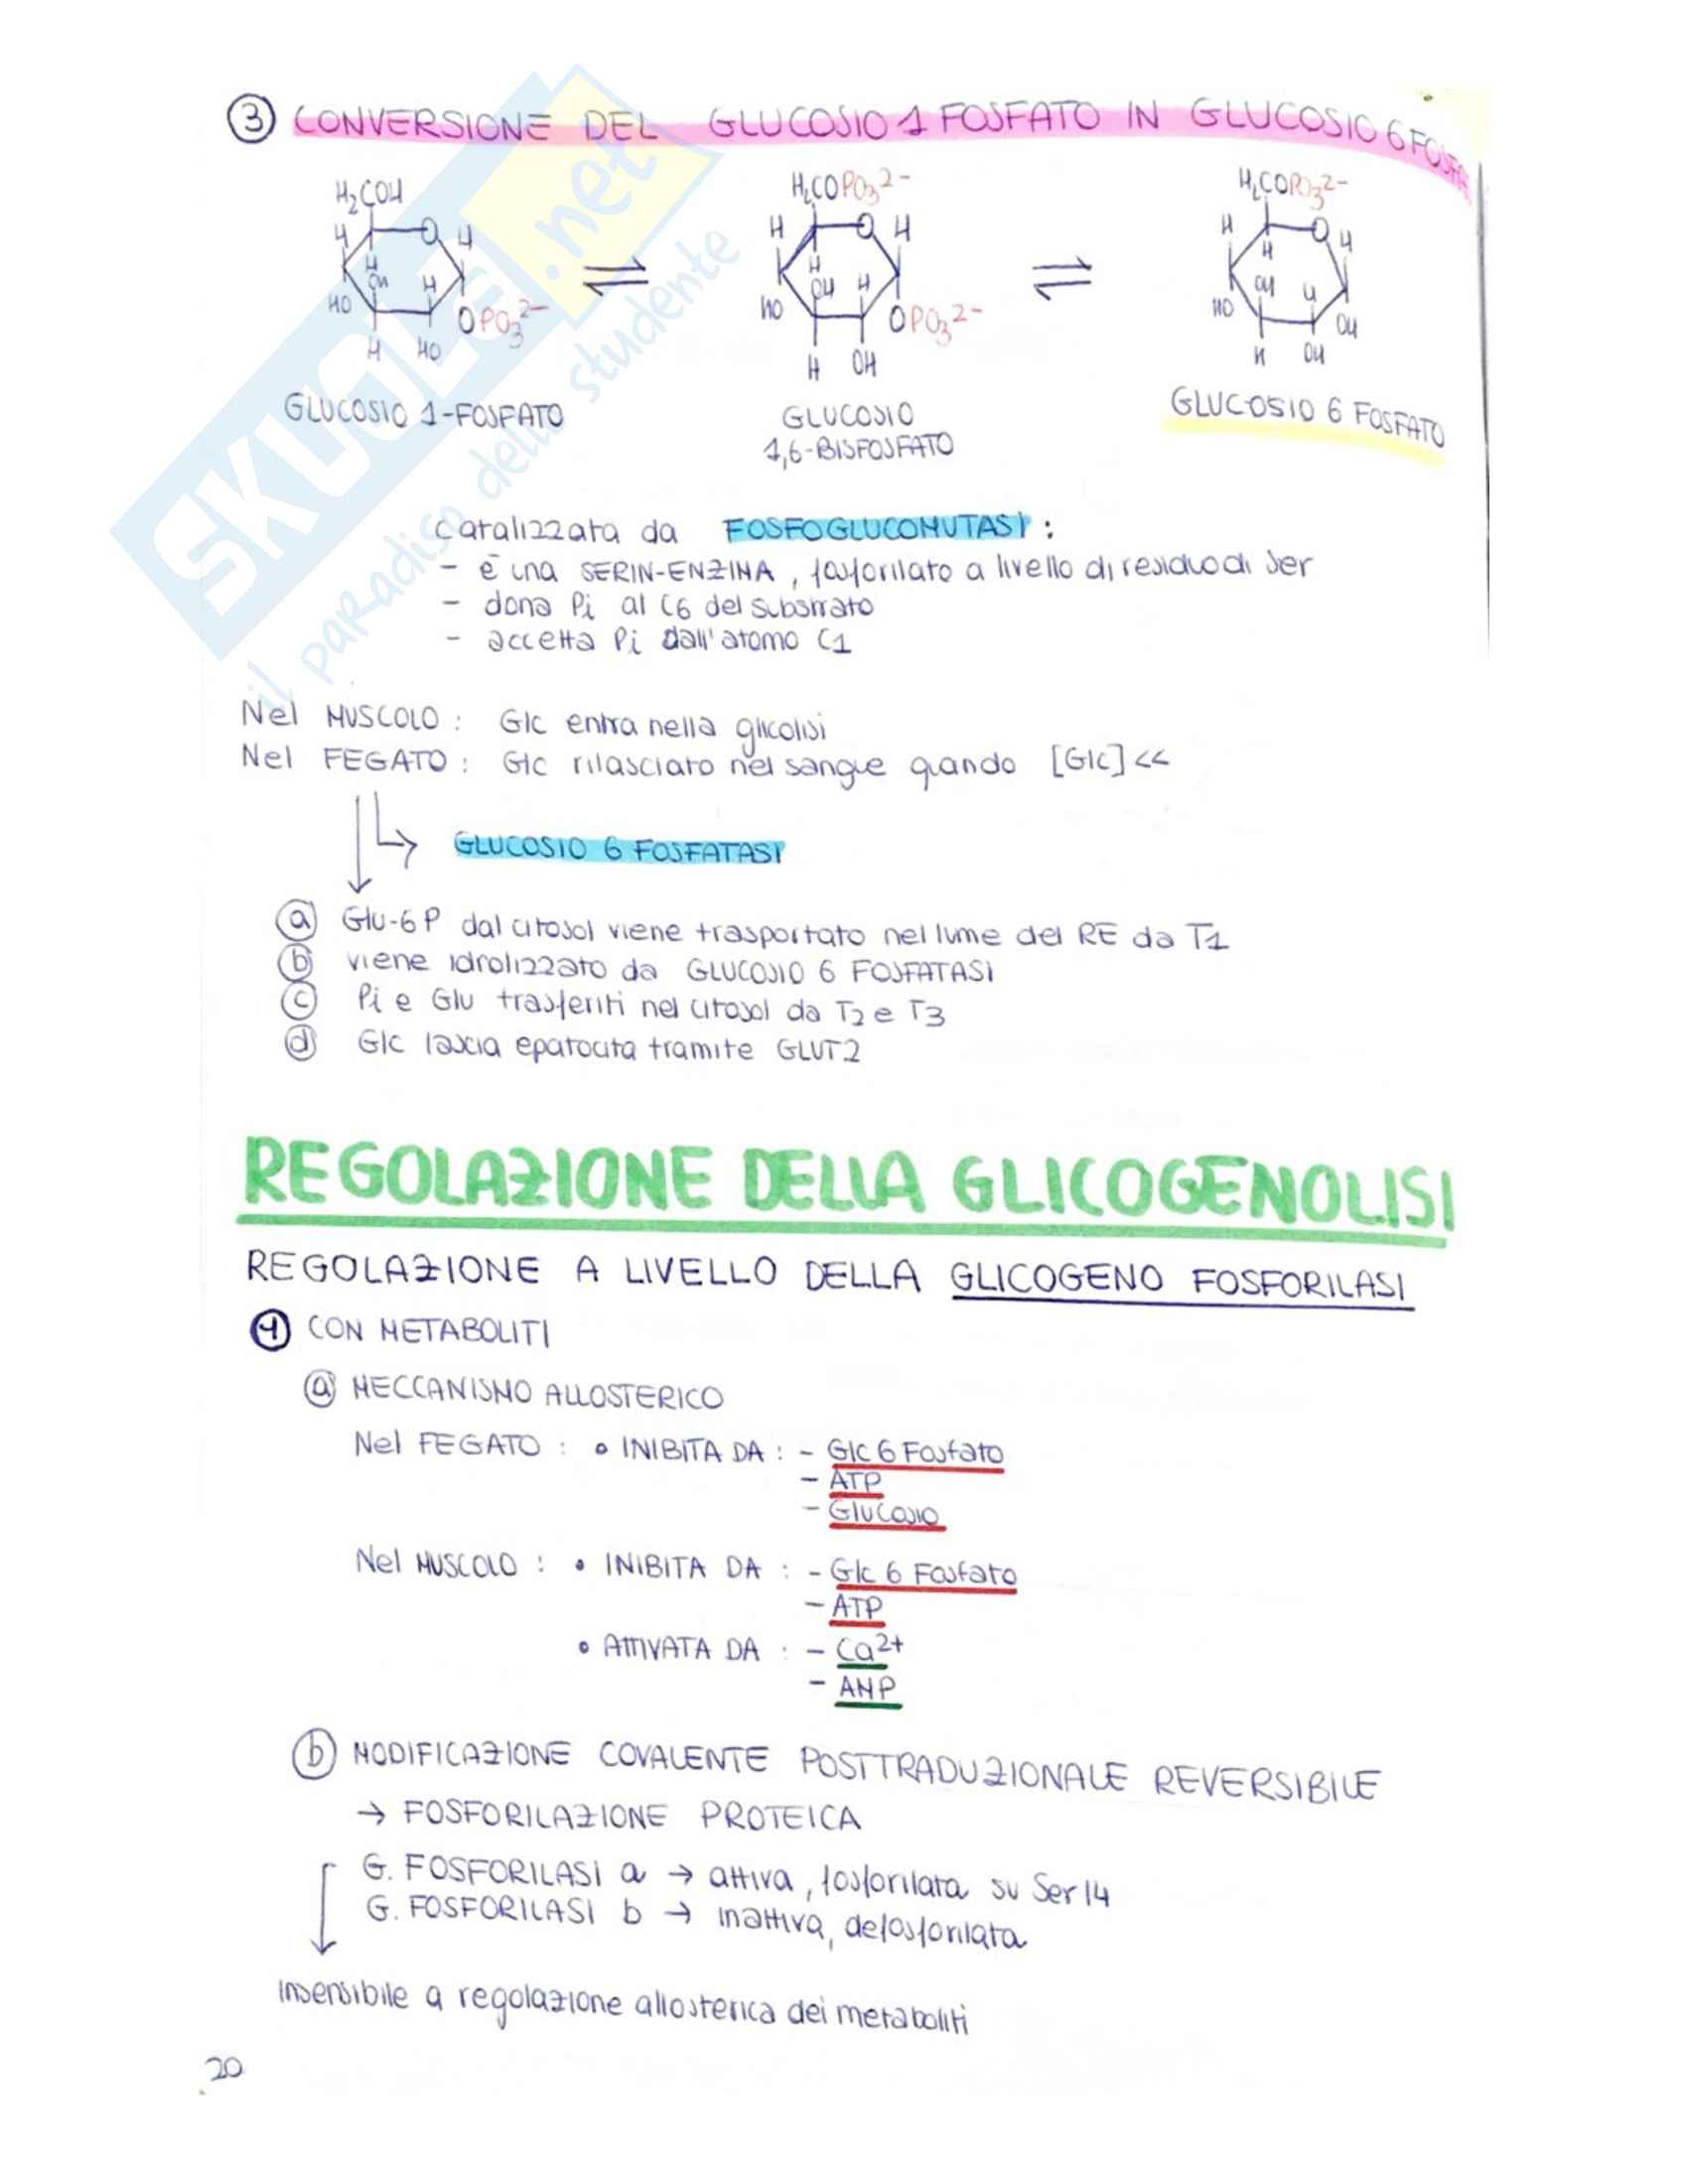 3 CONVERSIONE DEL GLUCOSIO 1 FOSFATO IN GLUCOSIO 6 FOSFA
H₂COH H₂COPO₃²⁻ H₂COPO₃²⁻
H O H H O H H O H
H H H
OH H OH H OH H
HO OPO₃²⁻ HO OPO₃²⁻ HO OH
H HO H OH H OH
GLUCOSIO 1-FOSFATO GLUCOSIO GLUCOSIO 6 FOSFATO
1,6-BISFOSFATO
catalizzata da FOSFOGLUCOMUTASI:
- è una SERIN-ENZIMA, fosforilato a livello di residuo di Ser
- dona Pi al C6 del substrato
- accetta Pi dall'atomo C1
Nel MUSCOLO: Glc entra nella glicolisi
Nel FEGATO: Glc rilasciato nel sangue quando [Glc] <<
GLUCOSIO 6 FOSFATASI
a Glu-6P dal citosol viene trasportato nel lume del RE da T1
b viene idrolizzato da GLUCOSIO 6 FOSFATASI
c Pi e Glu trasferiti nel citosol da T2 e T3
d Glc lascia epatocita tramite GLUT2
REGOLAZIONE DELLA GLICOGENOLISI
REGOLAZIONE A LIVELLO DELLA GLICOGENO FOSFORILASI
1 CON METABOLITI
a MECCANISMO ALLOSTERICO
Nel FEGATO: • INIBITA DA: - Glc 6 Fosfato
- ATP
- Glucosio
Nel MUSCOLO: • INIBITA DA: - Glc 6 Fosfato
- ATP
• ATTIVATA DA: - Ca²⁺
- AMP
b MODIFICAZIONE COVALENTE POSTTRADUZIONALE REVERSIBILE
→ FOSFORILAZIONE PROTEICA
G. FOSFORILASI a → attiva, fosforilata su Ser 14
G. FOSFORILASI b → inattiva, defosforilata
Insensibile a regolazione allosterica dei metaboliti
20
SKUOLA.net
il paradiso dello studente